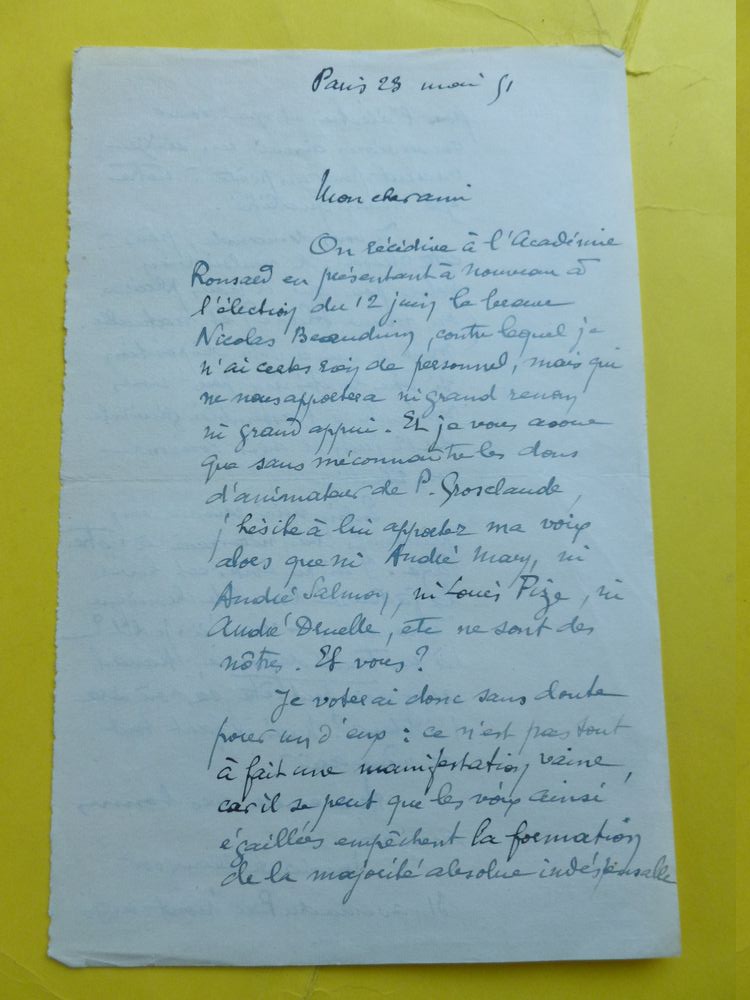 Paris 28 mai 51
Mon cher ami
On récidive à l'Académie
Ronsard en présentant à nouveau à
l'élection du 12 juin le brave
Nicolas Beauduin, contre lequel je
n'ai certes rien de personnel, mais qui
ne nous apportera ni grand renom
ni grand appui. Et je vous avoue
que sans méconnaître les dons
d'animateur de P. Grosclaude,
j'hésite à lui apporter ma voix
alors que ni André Mary, ni
André Salmon, ni Louis Pize, ni
André Druelle, etc ne sont des
nôtres. Et vous?
Je voterai donc sans doute
pour un d'eux : ce n'est pas tout
à fait une manifestation vaine,
car il se peut que les voix ainsi
égaillées empêchent la formation
de la majorité absolue indispensable